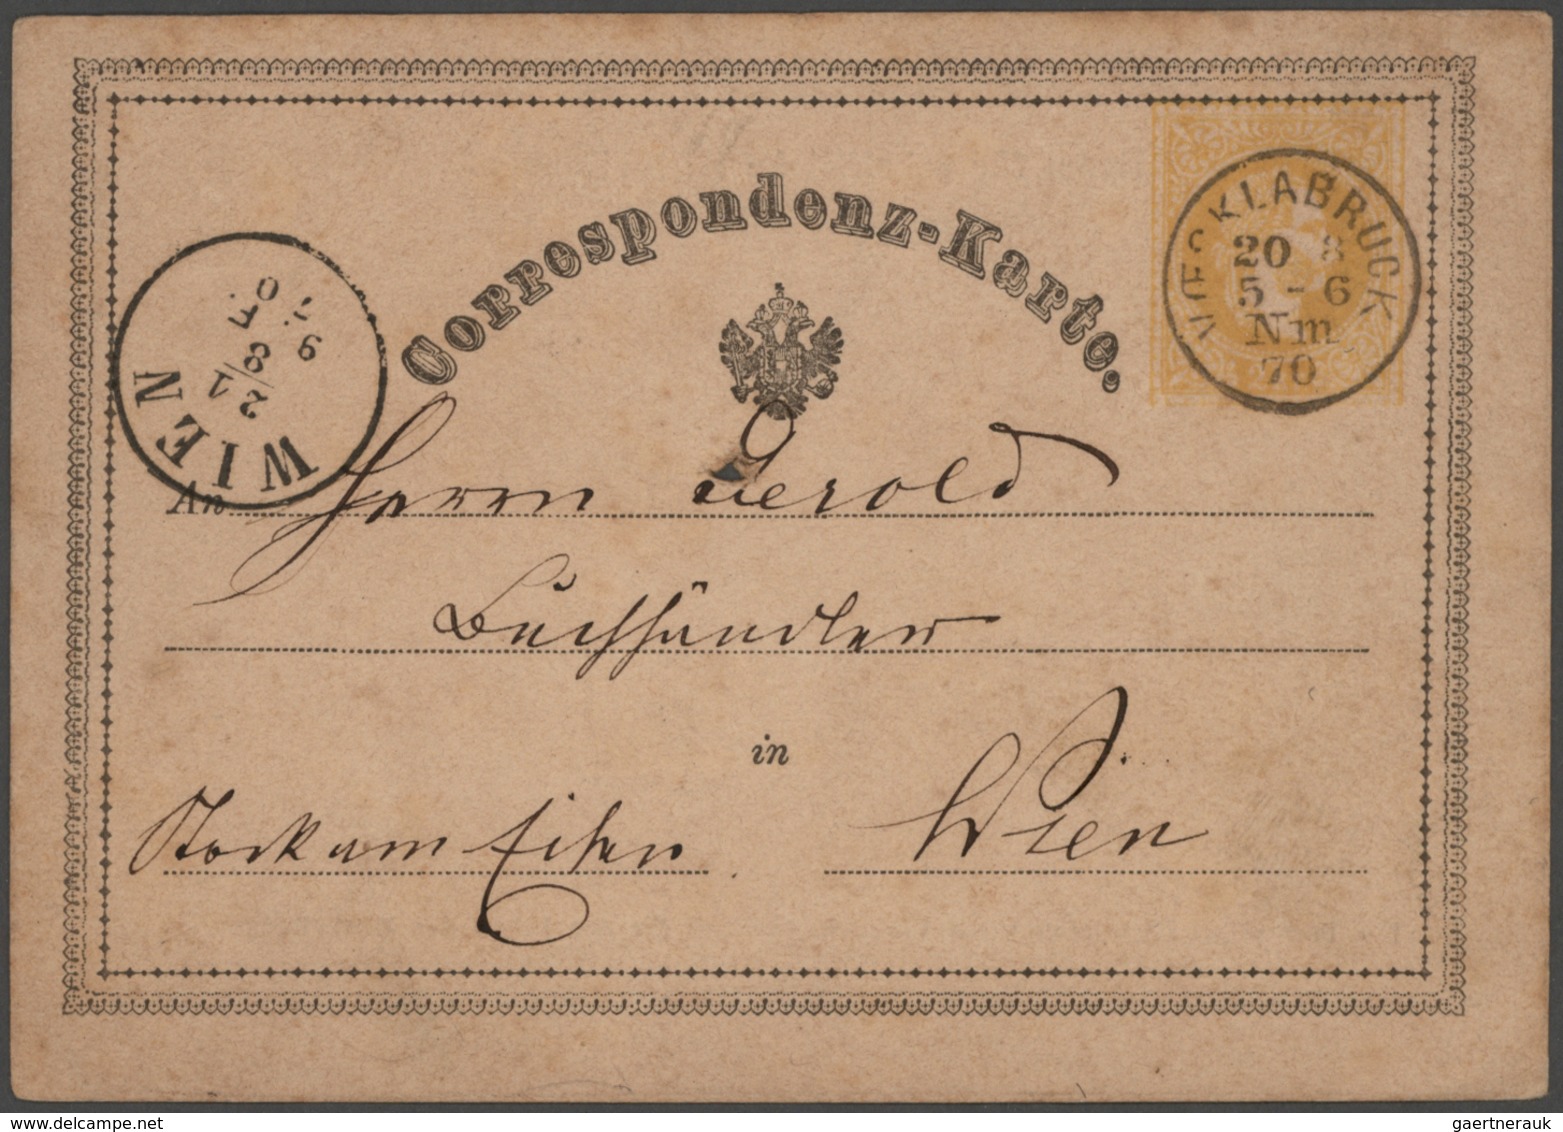 Correspondenz-Karte.
VÖCKLABRUCK
20 8
5 - 6
Nm
70
WIEN
21/8 7
9. 70.
An Herrn Gerold
Buchhändler
in
Stock am Eisen Wien
gaertnerauk